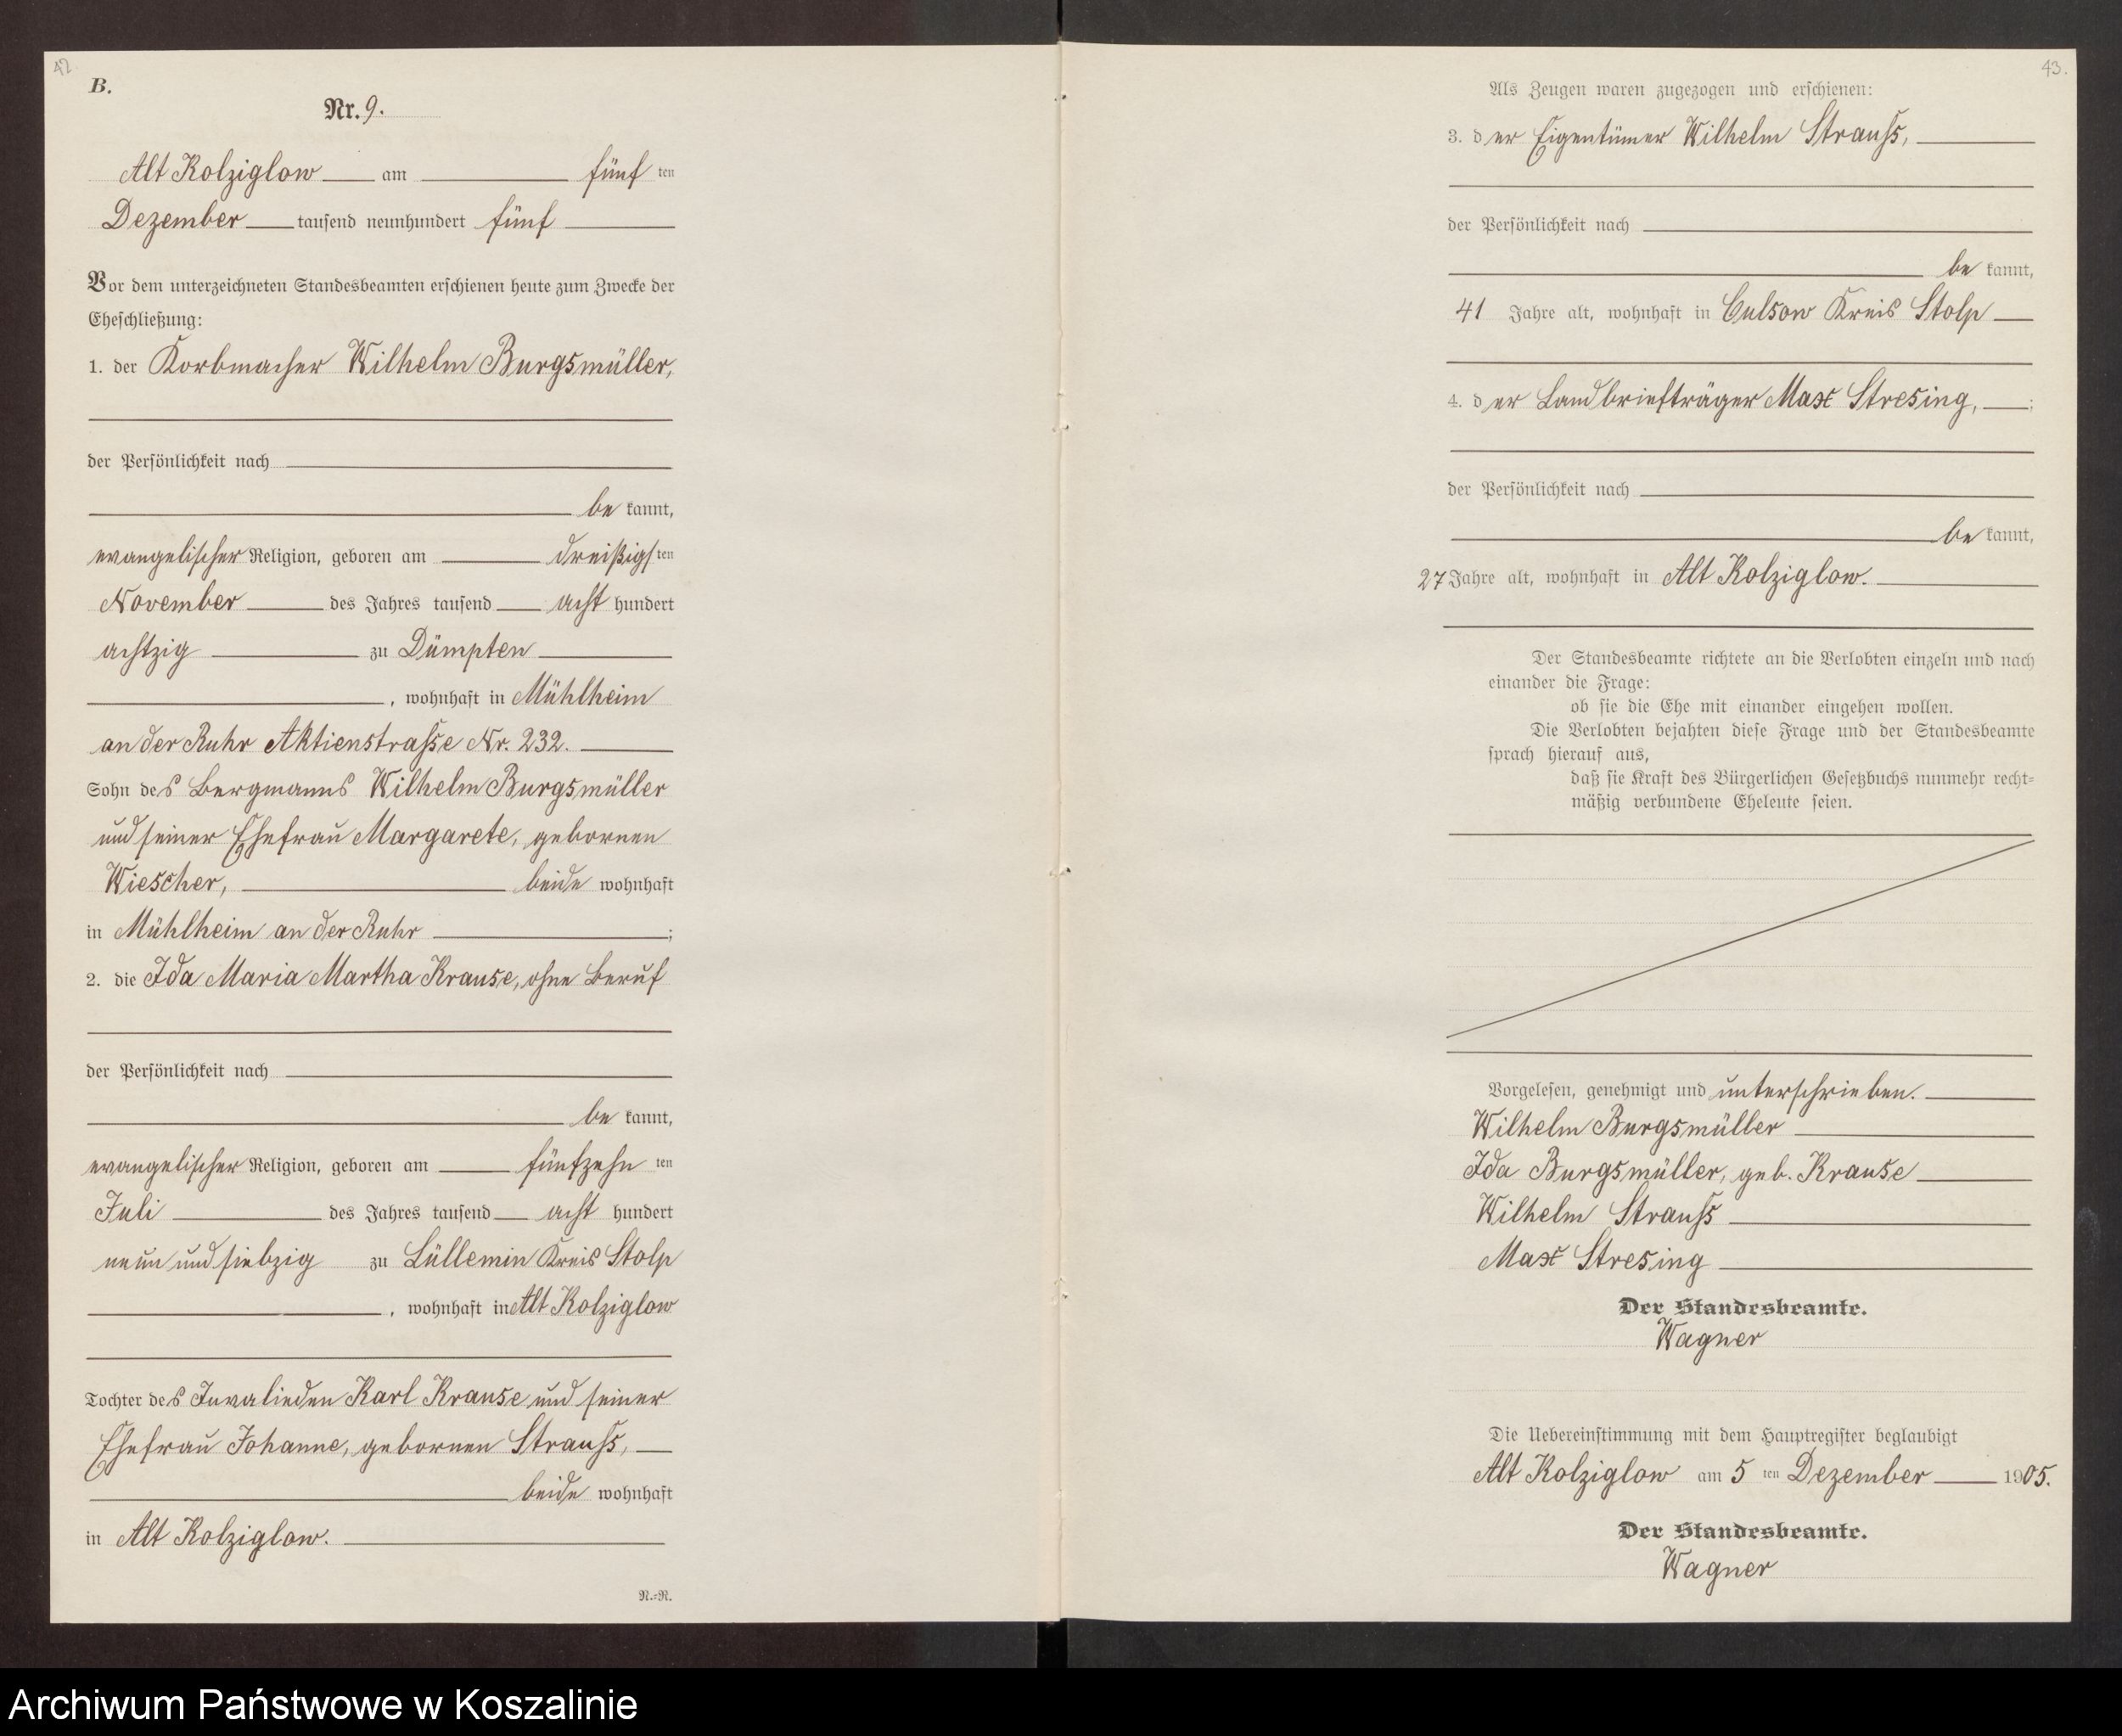 42
B.
Nr. 9.
Alt Kolziglow am fünf ten
Dezember tausend neunhundert fünf
Vor dem unterzeichneten Standesbeamten erschienen heute zum Zwecke der
Eheschließung:
1. der Korbmacher Wilhelm Burgsmüller,
der Persönlichkeit nach
be kannt,
evangelischer Religion, geboren am dreißigs ten
November des Jahres tausend acht hundert
achtzig zu Dümpten
, wohnhaft in Mühlheim
an der Ruhr Aktienstrasse Nr. 232.
Sohn des Bergmanns Wilhelm Burgsmüller
und seiner Ehefrau Margarete, gebornen
Wiescher, beide wohnhaft
in Mühlheim an der Ruhr ;
2. die Ida Maria Martha Krause, ohne Beruf
der Persönlichkeit nach
be kannt,
evangelischer Religion, geboren am fünfzehn ten
Juli des Jahres tausend acht hundert
neun und siebzig zu Lüllemin Kreis Stolp
, wohnhaft in Alt Kolziglow
Tochter des Invalieden Karl Krause und seiner
Ehefrau Johanne, gebornen Strauss,
beide wohnhaft
in Alt Kolziglow.
N.=N.
43.
Als Zeugen waren zugezogen und erschienen:
3. der Eigentümer Wilhelm Strauss,
der Persönlichkeit nach
be kannt,
41 Jahre alt, wohnhaft in Culsow Kreis Stolp
4. der Landbriefträger Max Stresing, ;
der Persönlichkeit nach
be kannt,
27 Jahre alt, wohnhaft in Alt Kolziglow.
Der Standesbeamte richtete an die Verlobten einzeln und nach
einander die Frage:
ob sie die Ehe mit einander eingehen wollen.
Die Verlobten bejahten diese Frage und der Standesbeamte
sprach hierauf aus,
daß sie Kraft des Bürgerlichen Gesetzbuchs nunmehr recht=
mäßig verbundene Eheleute seien.
Vorgelesen, genehmigt und unterschrieben.
Wilhelm Burgsmüller
Ida Burgsmüller, geb. Krause
Wilhelm Strauss
Max Stresing
Der Standesbeamte.
Wagner
Die Uebereinstimmung mit dem Hauptregister beglaubigt
Alt Kolziglow am 5 ten Dezember 1905.
Der Standesbeamte.
Wagner
Archiwum Państwowe w Koszalinie